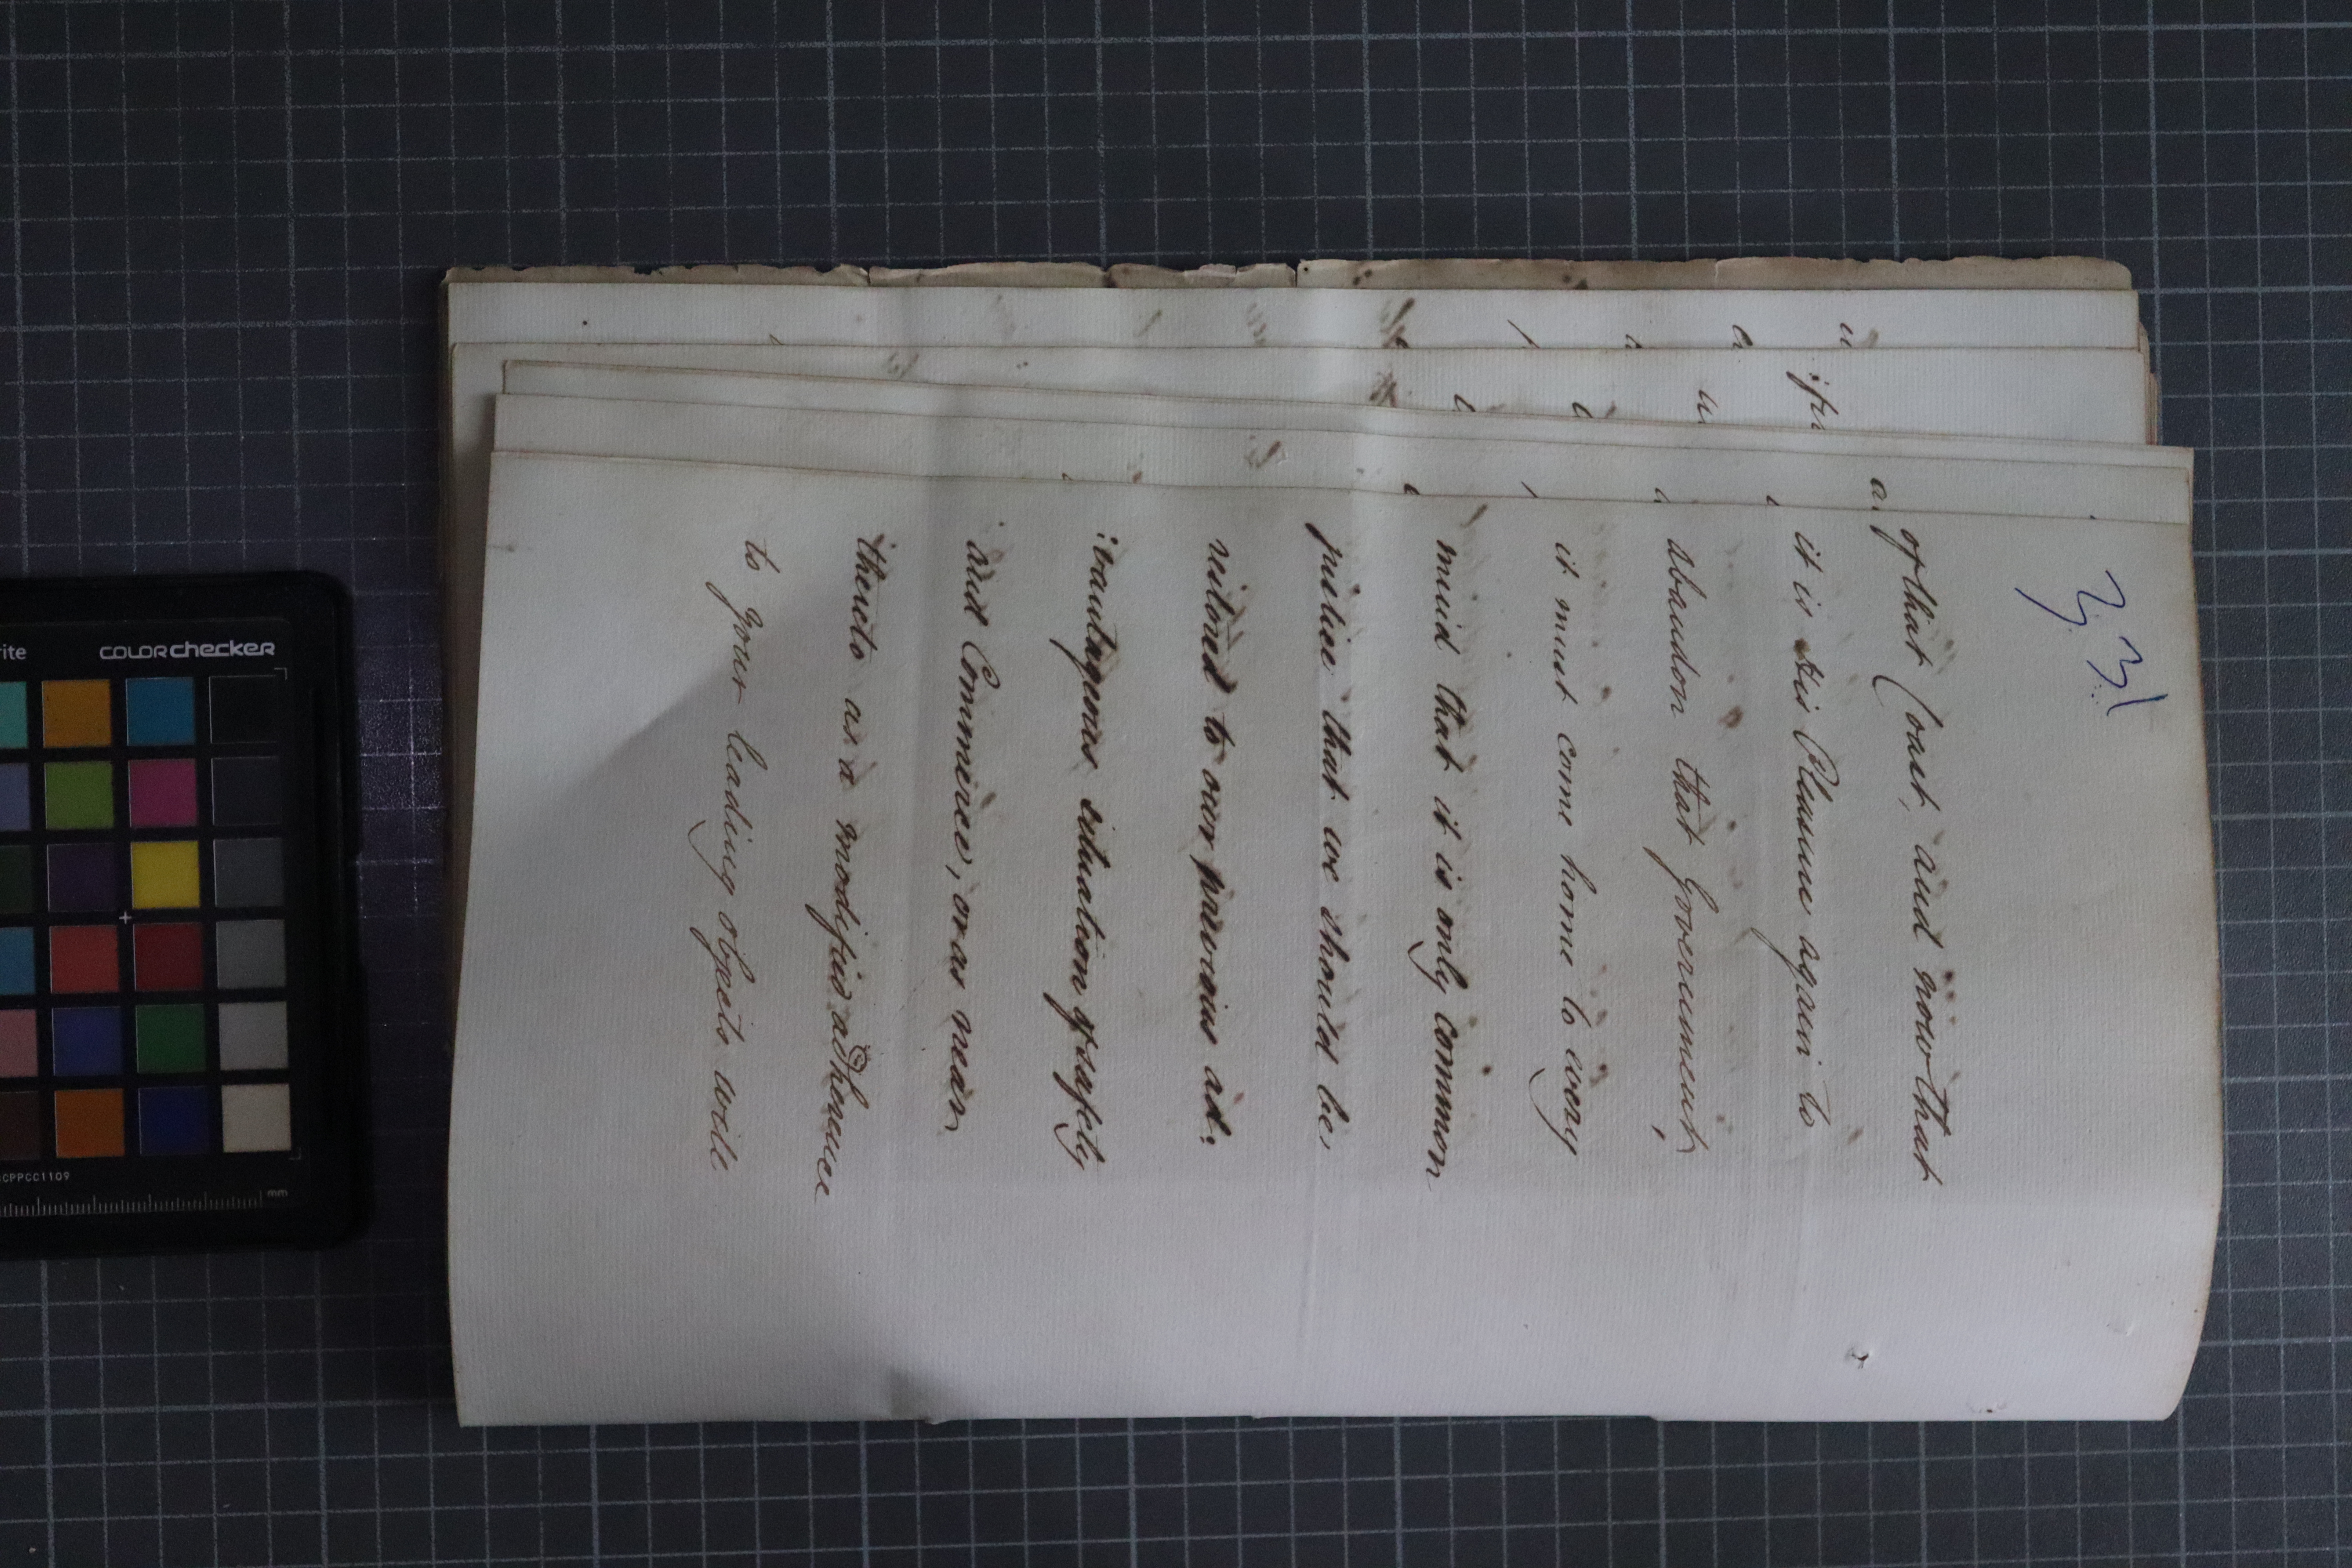 33)
of that Coast, and now that
it is His Pleasure again to
abandon that Government,
it must come home to every
mind that it is only common
justice that we should be
restored to our previous ad:
:vantageous situation of safety
and Commerce, or as near
thereto as a modified adherence
to your leading objects will
colorchecker
CCPPCC1109
mm